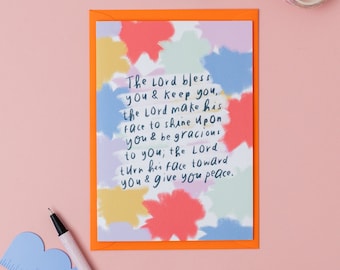 The Lord bless
you & keep you,
the Lord make his
face to shine upon
you & be gracious
to you; the Lord
turn his face toward
you & give you peace.